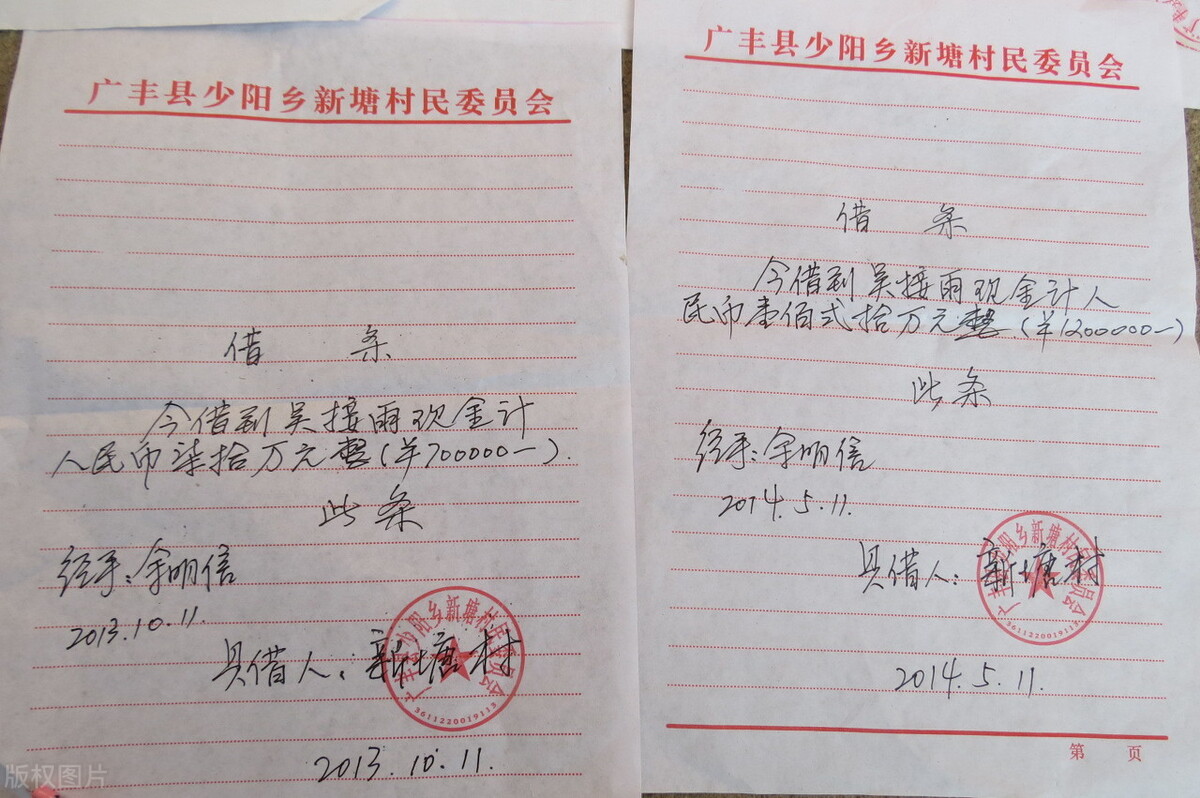 广丰县少阳乡新塘村民委员会
借 条
今借到吴接雨现金计
人民币柒拾万元整(羊700000一).
此条
经手:余明信
2013.10.11.
具借人:新塘村
广丰县少阳乡新塘村民委员会
3611220019113
2013.10.11.
版权图片
广丰县少阳乡新塘村民委员会
借 条
今借到吴接雨现金计人
民币壹佰弍拾万元整(羊1200000一)
此条
经手:余明信
2014.5.11.
具借人:新塘村
广丰县少阳乡新塘村民委员会
3611220019113
2014.5.11.
第 页